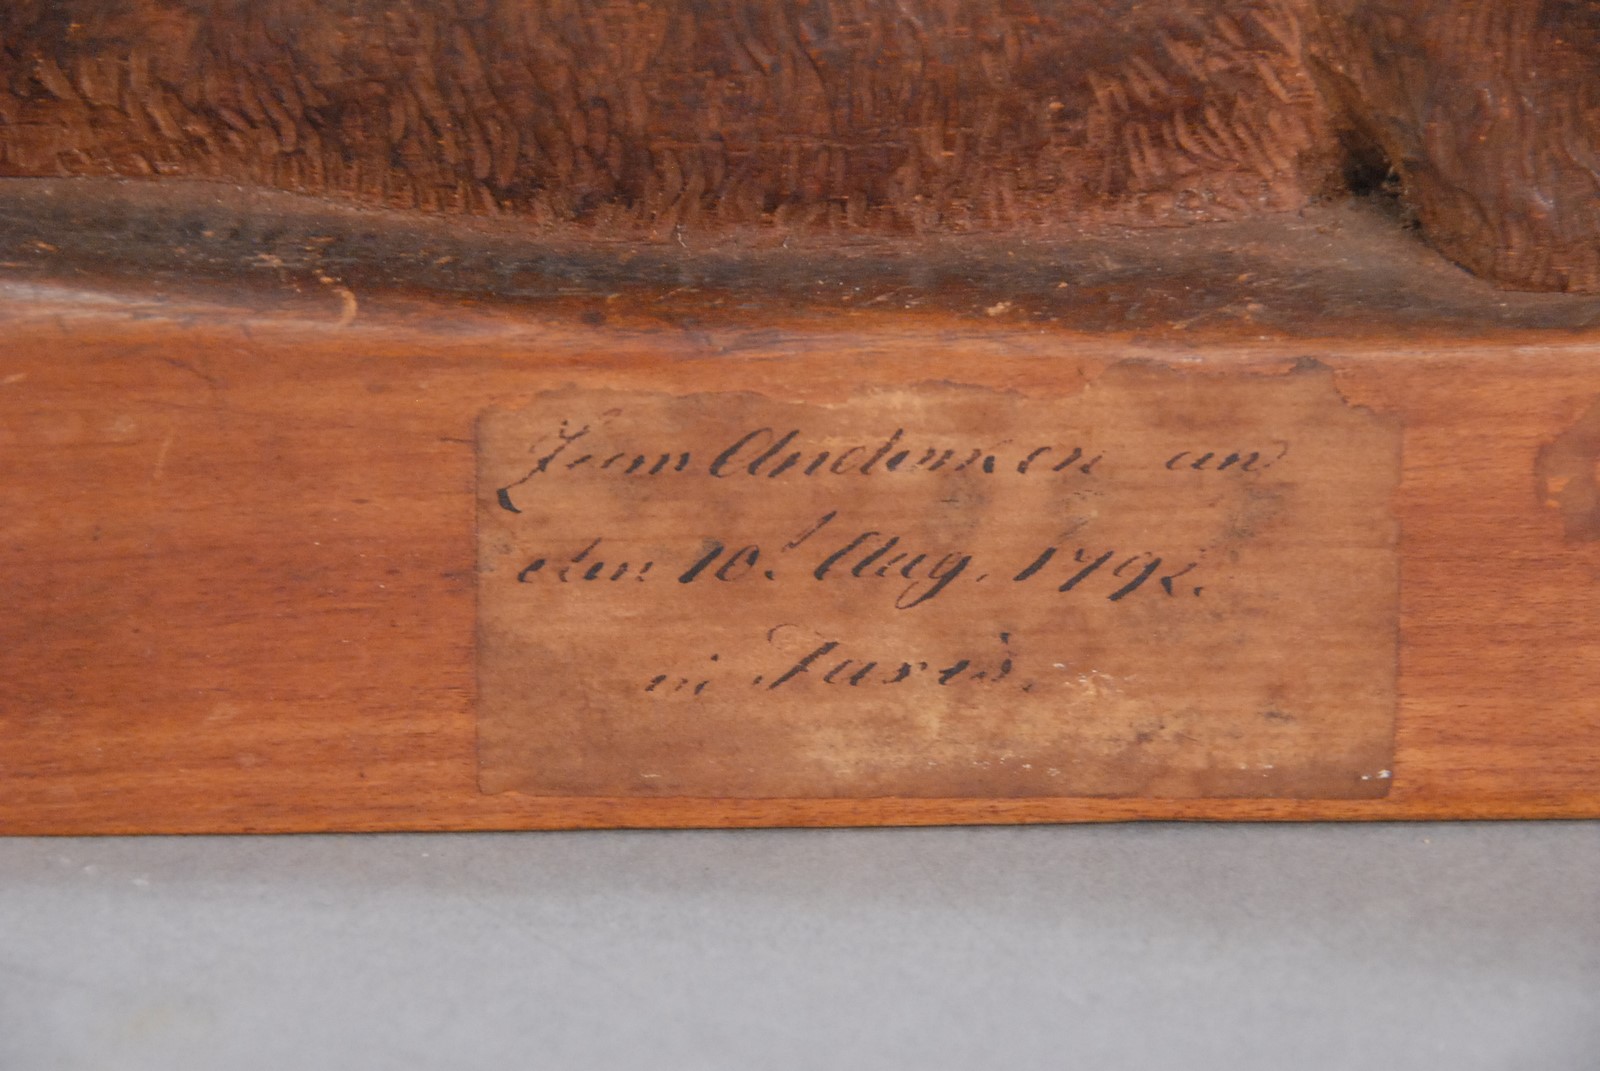 Zum Andenken an
den 10.t Aug. 1792.
in Paris.